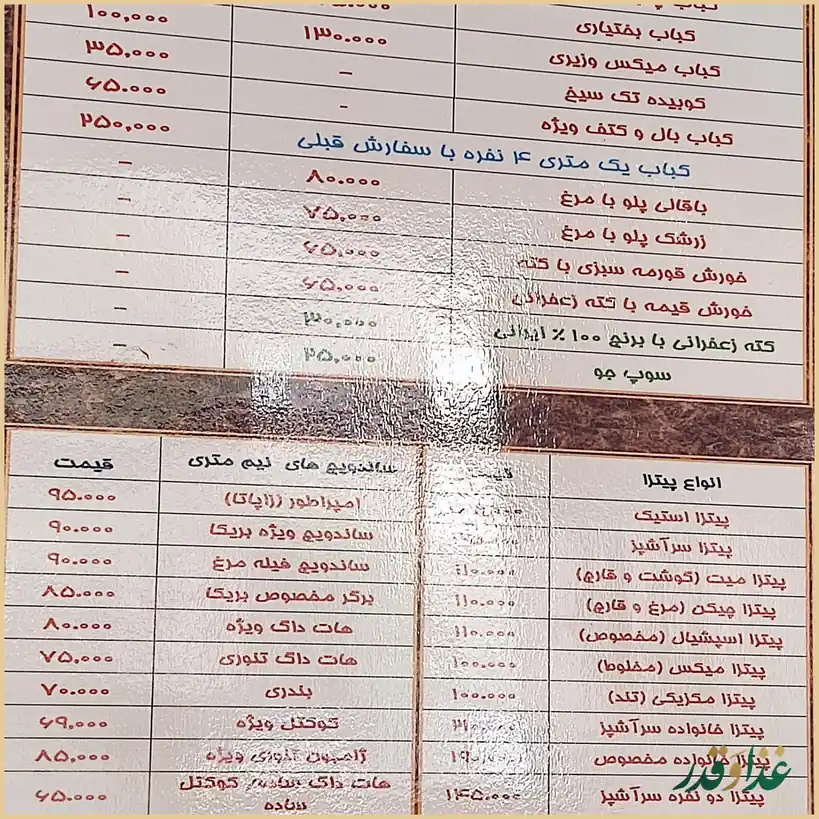 کباب بختیاری
کباب میکس وزیری ۱۳۰.۰۰۰ ۱۰۰,۰۰۰
کوبیده تک سیخ – ۳۵,۰۰۰
کباب بال و کتف ویژه - ۶۵.۰۰۰
کباب یک متری ۴ نفره با سفارش قبلی ۲۵۰,۰۰۰
باقالی پلو با مرغ ۸۰.۰۰۰ –
زرشک پلو با مرغ ۷۵,۰۰۰ –
خورش قورمه سبزی با کته ۶۵,۰۰۰ –
خورش قیمه با کته زعفرانی ۶۵,۰۰۰ –
کته زعفرانی با برنج ۱۰۰٪ ایرانی ۳۰,۰۰۰ –
سوپ جو ۲۵,۰۰۰ –
انواع پیتزا
پیتزا استیک
پیتزا سرآشپز
پیتزا میت (گوشت و قارچ) ۱۱۰.۰۰۰
پیتزا چیکن (مرغ و قارچ) ۱۱۰.۰۰۰
پیتزا اسپشیال (مخصوص) ۱۱۰.۰۰۰
پیتزا میکس (مخلوط) ۱۰۰.۰۰۰
پیتزا مکزیکی (تند) ۱۰۰.۰۰۰
پیتزا خانواده سرآشپز
پیتزا خانواده مخصوص
پیتزا دو نفره سرآشپز ۱۴۵.۰۰۰
ساندویچ های نیم متری قیمت
امپراطور (زاپاتا) ۹۵.۰۰۰
ساندویچ ویژه بریکا ۹۰.۰۰۰
ساندویچ فیله مرغ ۹۰.۰۰۰
برگر مخصوص بریکا ۸۵.۰۰۰
هات داگ ویژه ۸۰.۰۰۰
هات داگ تنوری ۷۵,۰۰۰
بندری ۷۰.۰۰۰
کوکتل ویژه ۶۹,۰۰۰
ژامبون تنوری ویژه ۸۵,۰۰۰
هات داگ ساده, کوکتل ساده ۶۵.۰۰۰
غذا و قدر